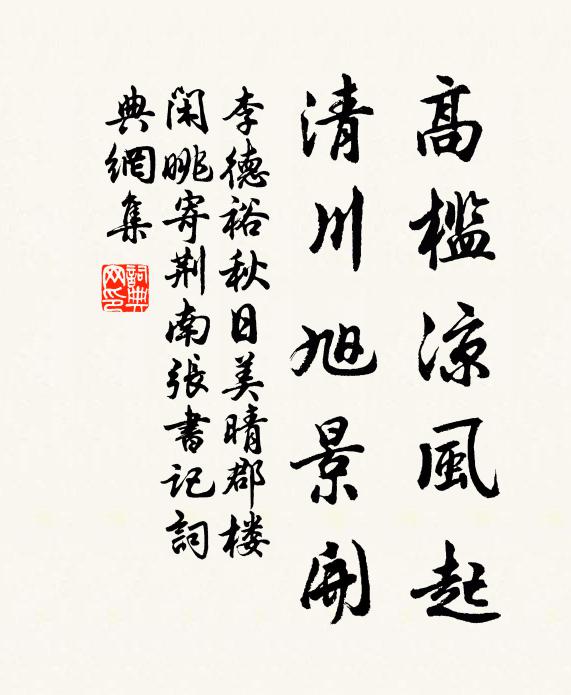 高檻涼風起
清川旭景開
李德裕秋日美晴郡楼
闲眺寄荆南張書记詞
典網集
詞典网印